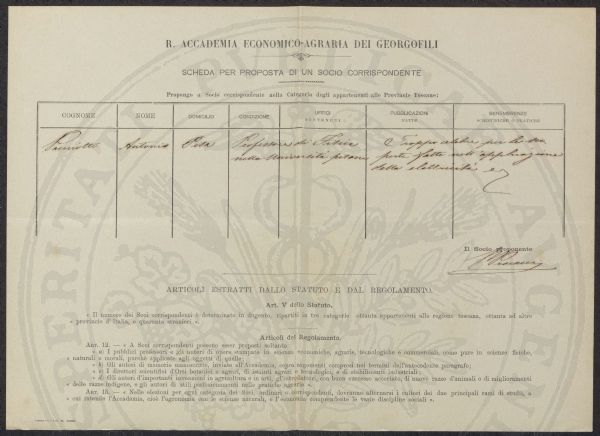 R. ACCADEMIA ECONOMICO-AGRARIA DEI GEORGOFILI
SCHEDA PER PROPOSTA DI UN SOCIO CORRISPONDENTE
Propongo a Socio corrispondente nella Categoria degli appartenenti alle Provincie Toscane:
COGNOME NOME DOMICILIO CONDIZIONE UFFICI SOSTENUTI PUBBLICAZIONI FATTE BENEMERENZE SCIENTIFICHE O PRATICHE
Pacinotti Antonio Pisa Professore di Fisica È troppo celebre per le sco
nella Università pisana perte fatte nell'applicazione
della elettricità
Il Socio proponente
ARTICOLI ESTRATTI DALLO STATUTO E DAL REGOLAMENTO.
Art. V dello Statuto.
« Il numero dei Soci corrispondenti è determinato in dugento, ripartiti in tre categorie: ottanta appartenenti alle regione toscana, ottanta ad altre
« provincie d'Italia, e quaranta stranieri ».
Articoli del Regolamento.
ART. 12. — « A Soci corrispondenti possono esser proposti soltanto
« a) I pubblici professori e gli autori di opere stampate in scienze economiche, agrarie, tecnologiche e commerciali, come pure in scienze fisiche,
« naturali o morali, purchè applicate agli oggetti di quelle;
« b) Gli autori di memorie manoscritte, inviate all'Accademia, sopra argomenti compresi nei termini dell'antecedente paragrafo;
« c) I direttori scientifici d'Orti botanici e agrari, di musei agrari e tecnologici, e di stabilimenti industriali;
« d) Gli autori d'importanti invenzioni in agricoltura o in arti, gl'introduttori, con buon successo accertato, di nuove razze d'animali o di miglioramenti
« delle razze indigene, e gli autori di utili perfezionamenti nelle pratiche agrarie ».
« Nelle elezioni per ogni categoria dei Soci, ordinari o corrispondenti, dovranno alternarsi i cultori dei due principali rami di studi, a
« cui intende l'Accademia, cioè l'agronomia con le scienze naturali, e l'economia comprendente le varie discipline sociali ».